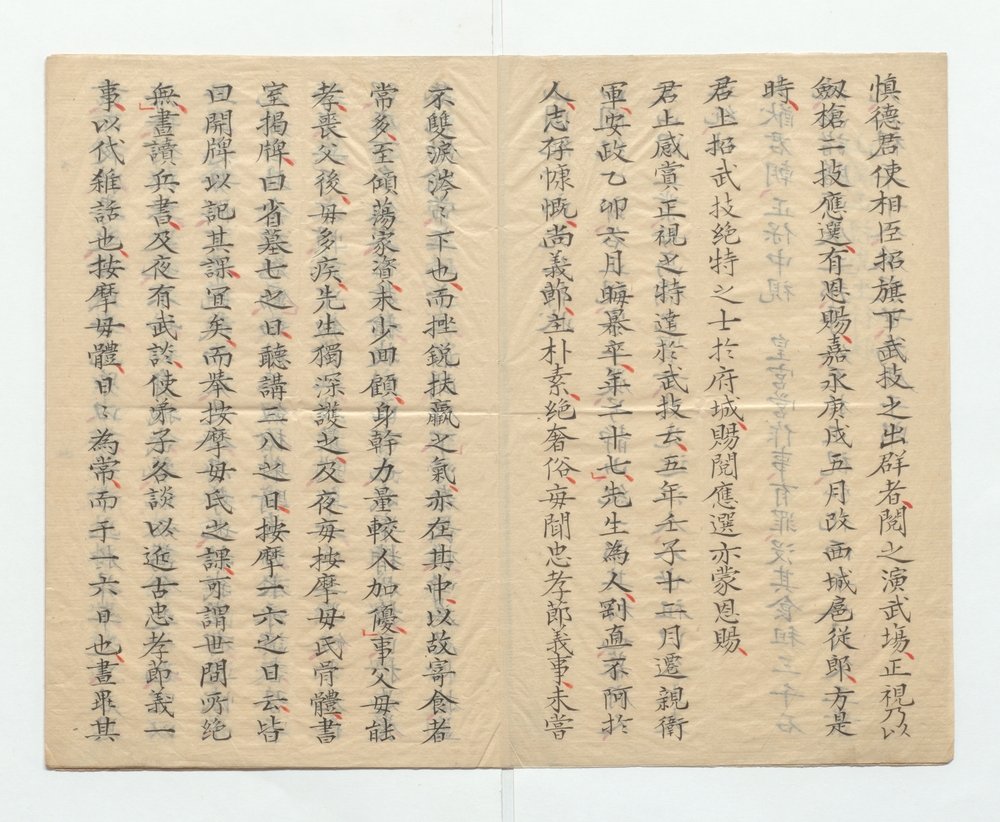 慎德君使相臣招旗下武技之出群者閲之演武塲正視乃以
劔槍二技應選有恩賜嘉永庚戌五月改西城扈從郎方是
時
君上招武技絶特之士於府城賜閲應選亦蒙恩賜
君上感賞正視之特達於武技云五年壬子十二月遷親衛
軍安政乙卯六月晦暴卒年三十七先生為人剛直不阿於
人志存慷慨尚義節主朴素絶奢俗毎聞忠孝節義事未嘗
不雙淚滂〻下也而挫鋭扶羸之氣亦在其中以故寄食者
常多至傾蕩家資未少回顧身幹力量較人加優事父母能
孝喪父後母多疾先生獨深護之及夜毎按摩母氏骨體書
室掲牌曰省墓七之日聽講三八之日按摩一六之日云皆
曰開牌以記其課宜矣而舉按摩母氏之課可謂世間所絶
無晝讀兵書及夜有武談使弟子各談以近古忠孝節義一
事以代雜話也按摩母體日〻為常而于一六日也晝畢其